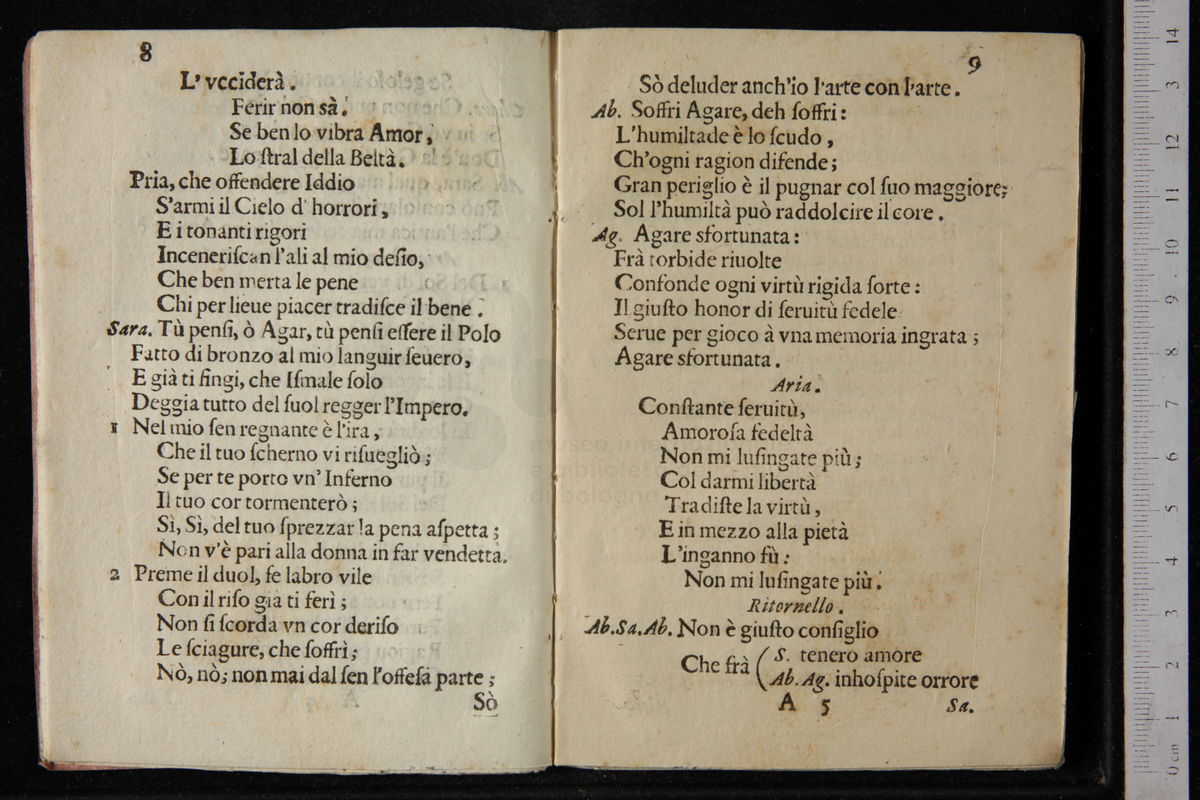 8
L' vcciderà.
Ferir non sà.
Se ben lo vibra Amor,
Lo ſtral della Beltà.
Pria, che offendere Iddio
S'armi il Cielo d' horrori,
E i tonanti rigori
Inceneriſcan l'ali al mio deſio,
Che ben merta le pene
Chi per lieue piacer tradiſce il bene.
Sara. Tù penſi, ò Agar, tù penſi eſſere il Polo
Fatto di bronzo al mio languir ſeuero,
E già ti fingi, che Iſmale ſolo
Deggia tutto del ſuol regger l'Impero.
1 Nel mio ſen regnante è l'ira,
Che il tuo ſcherno vi riſuegliò;
Se per te porto vn' Inferno
Il tuo cor tormenterò;
Sì, Sì, del tuo ſprezzar la pena aſpetta;
Non v'è pari alla donna in far vendetta.
2 Preme il duol, ſe labro vile
Con il riſo gia ti ferì;
Non ſi ſcorda vn cor deriſo
Le ſciagure, che ſoffrì;
Nò, nò; non mai dal ſen l'offeſa parte;
Sò
9
Sò deluder anch'io l'arte con l'arte.
Ab. Soffri Agare, deh ſoffri:
L'humiltade è lo ſcudo,
Ch'ogni ragion difende;
Gran periglio è il pugnar col ſuo maggiore;
Sol l'humiltà può raddolcire il core.
Ag. Agare sfortunata:
Frà torbide riuolte
Confonde ogni virtù rigida ſorte:
Il giuſto honor di ſeruitù fedele
Serue per gioco à vna memoria ingrata;
Agare sfortunata.
Aria.
Conſtante ſeruitù,
Amoroſa fedeltà
Non mi luſingate più;
Col darmi libertà
Tradiſte la virtù,
E in mezzo alla pietà
L'inganno fù:
Non mi luſingate più.
Ritornello.
Ab.Sa.Ab. Non è giuſto conſiglio
Che frà ( S. tenero amore
Ab. Ag. inhoſpite orrore
A 5 Sa.